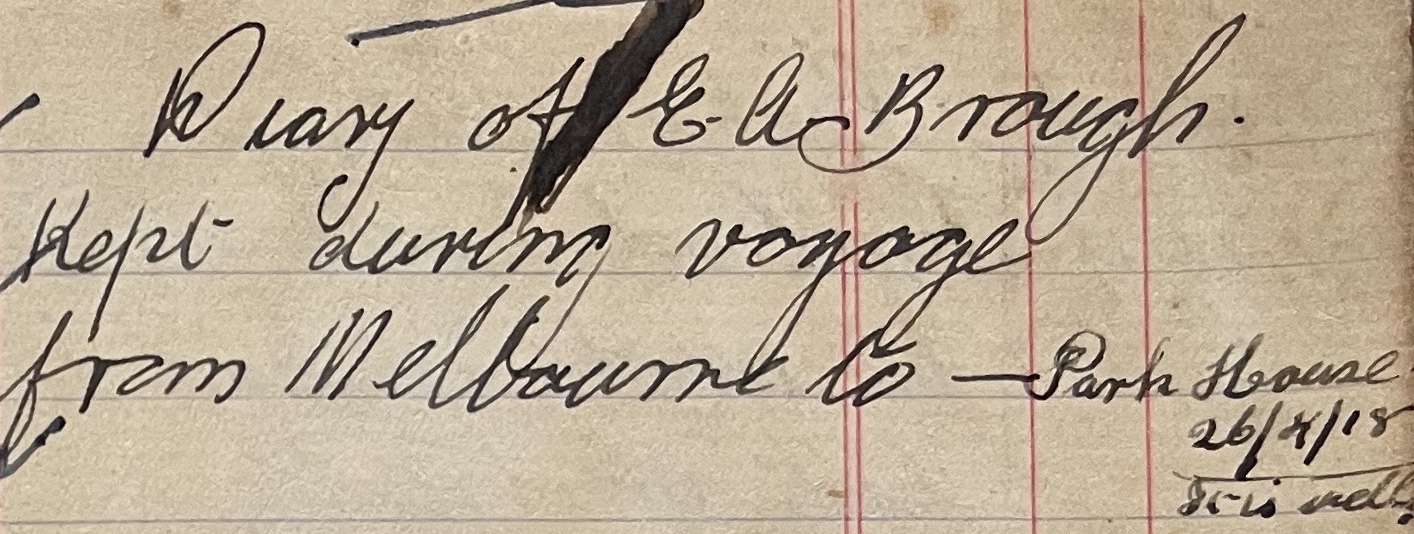 Diary of E. A. Brough.
Kept during voyage
from Melbourne to — Park House
26/4/18
It is well